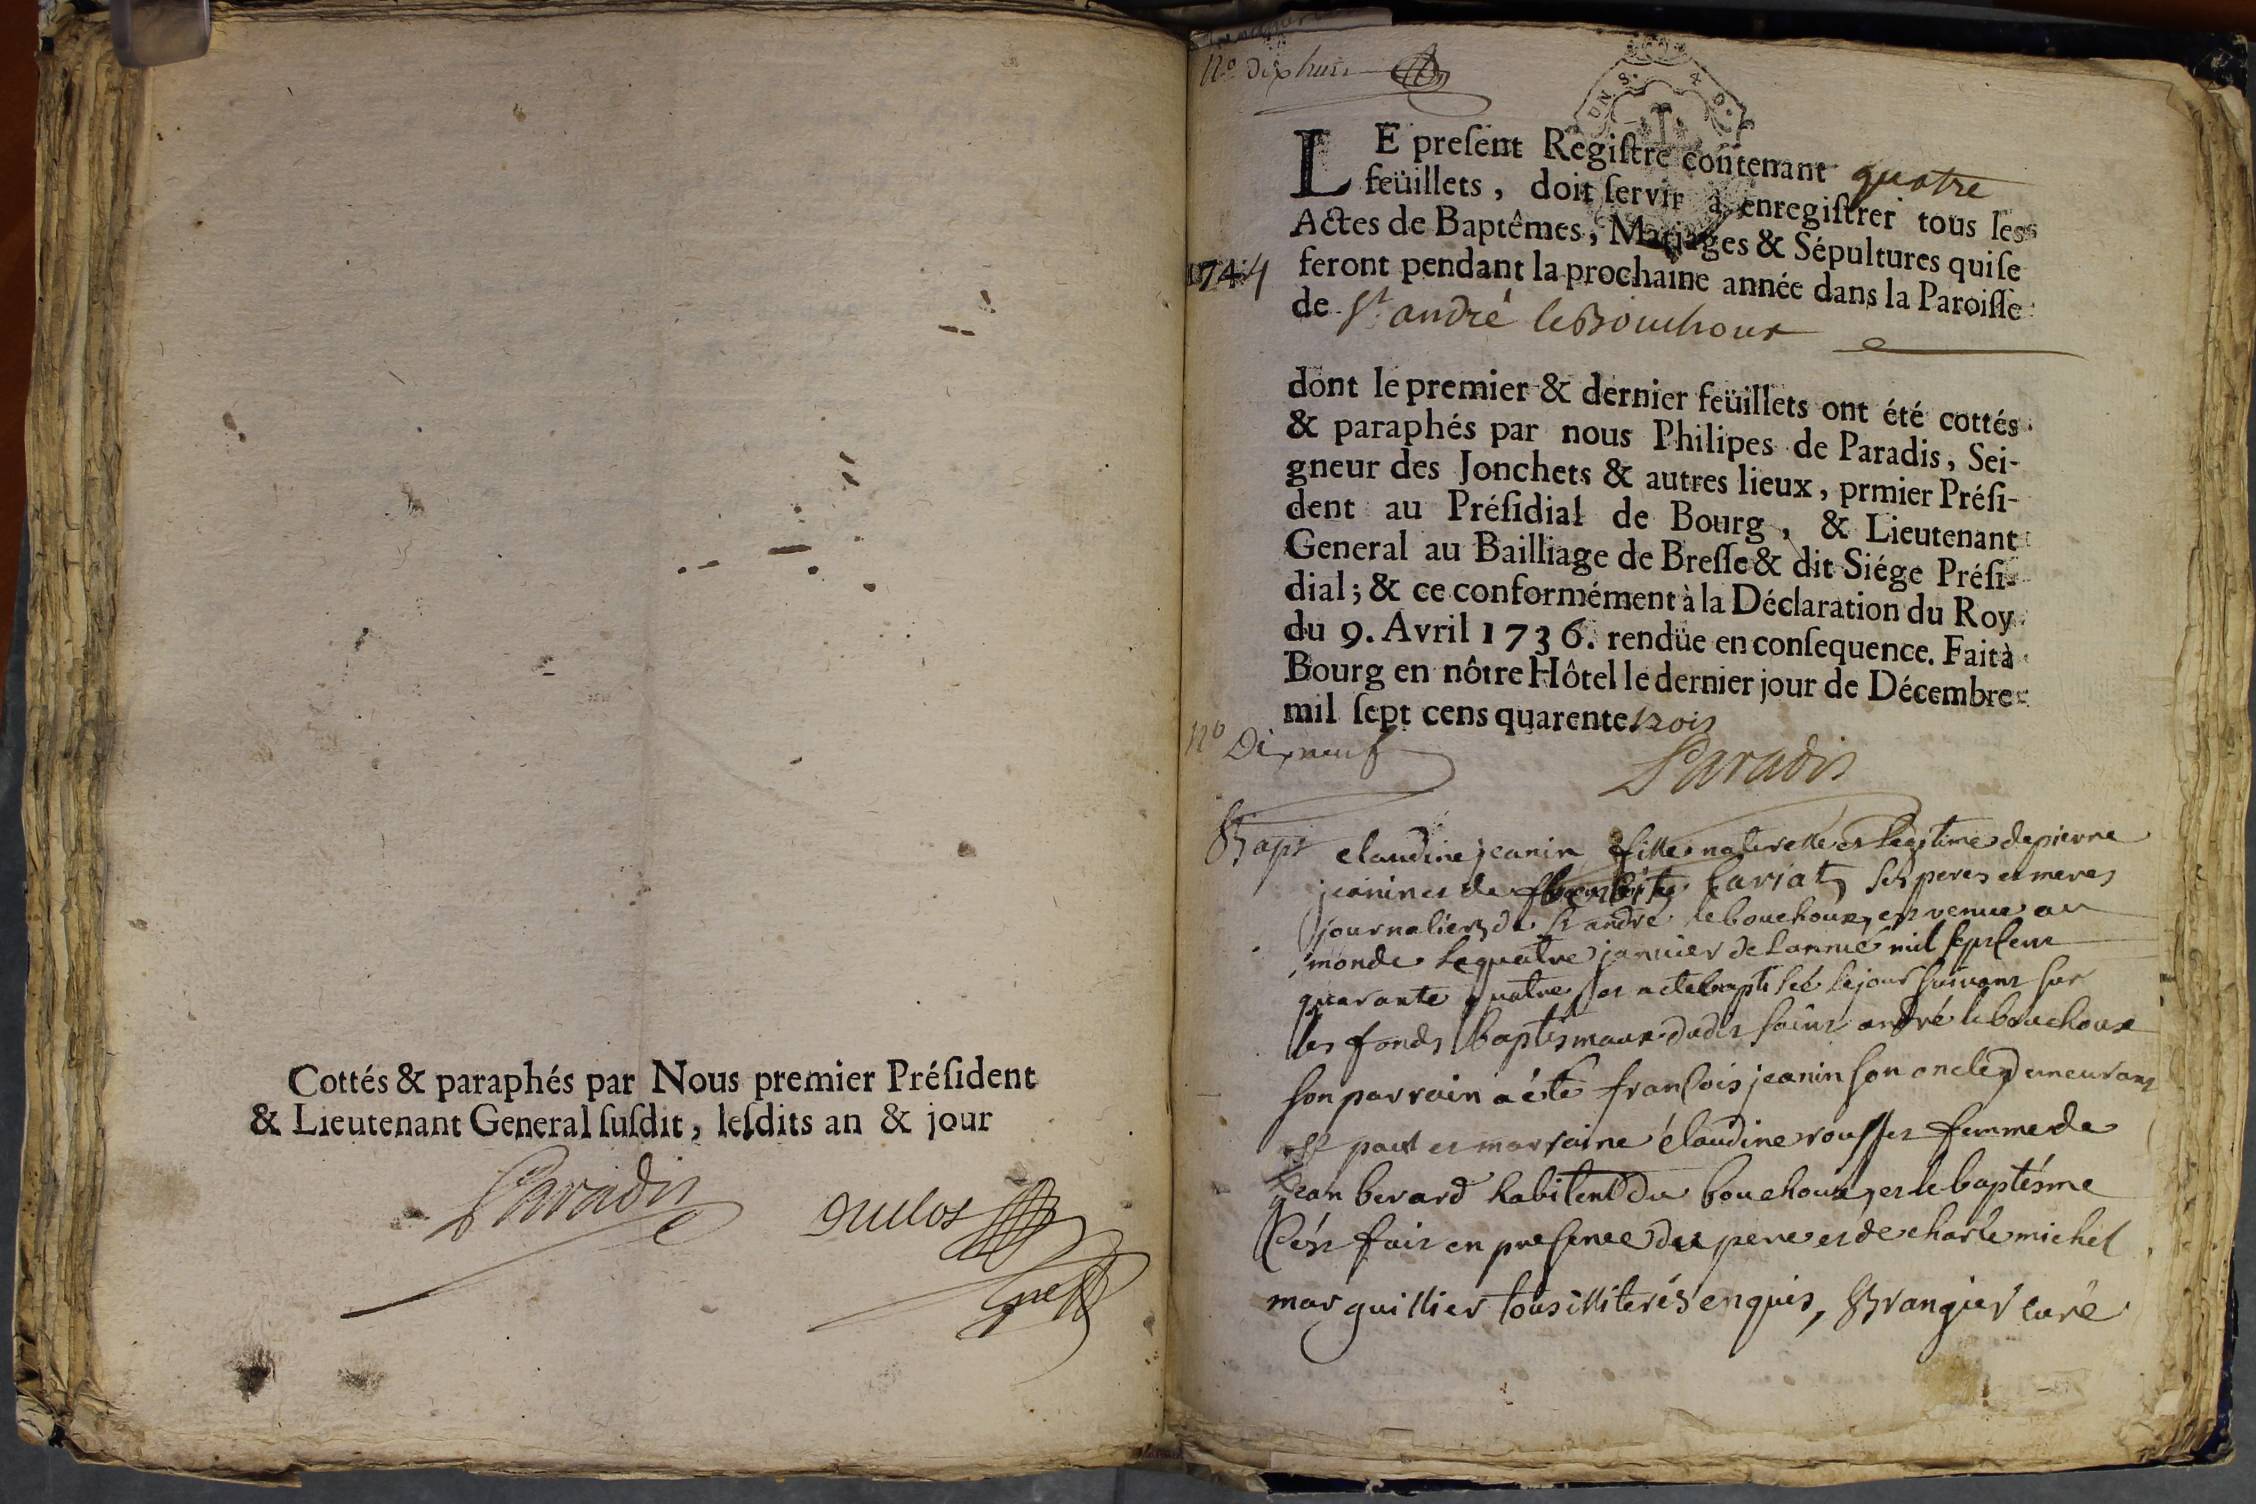 Cottés & paraphés par Nous premier Préſident
& Lieutenant General ſuſdit, leſdits an & jour
Paradis
N.o dix huit
LE preſent Regiſtre contenant quatre
feüillets, doit ſervir à enregiſtrer tous les
Actes de Baptêmes, Mariages & Sépultures qui ſe
1744 feront pendant la prochaine année dans la Paroiſſe
de St andré le Bouchoux
dont le premier & dernier feüillets ont été cottés
& paraphés par nous Philipes de Paradis, Sei-
gneur des Jonchets & autres lieux, prmier Préſi-
dent au Préſidial de Bourg, & Lieutenant
General au Bailliage de Breſſe & dit Siége Préſi-
dial; & ce conformément à la Déclaration du Roy
du 9. Avril 1736. rendüe en conſequence. Fait à
Bourg en nôtre Hôtel le dernier jour de Décembre
mil ſept cens quarente trois
No Dixneuf
Paradis
Bapt claudine jeanin fille naturelle et legitime de pierre
jeanin et de cariat ses peres et meres
journaliers de st andré le bouchoux, est venue au
monde le quatre janvier de l'année mil sept cent
quarante quatre, et a ete baptisée le jour suivant sur
les fonds baptismaux dudit saint andré le bouchoux
son parrain a été francois jeanin son oncle demeurant
st paul et marraine claudine rousset femme de
jean berard habitent du bouchoux, et le baptésme
s'est fait en presence du pere et de charle michel
marguillier tous illiterés enquis, Brangier curé